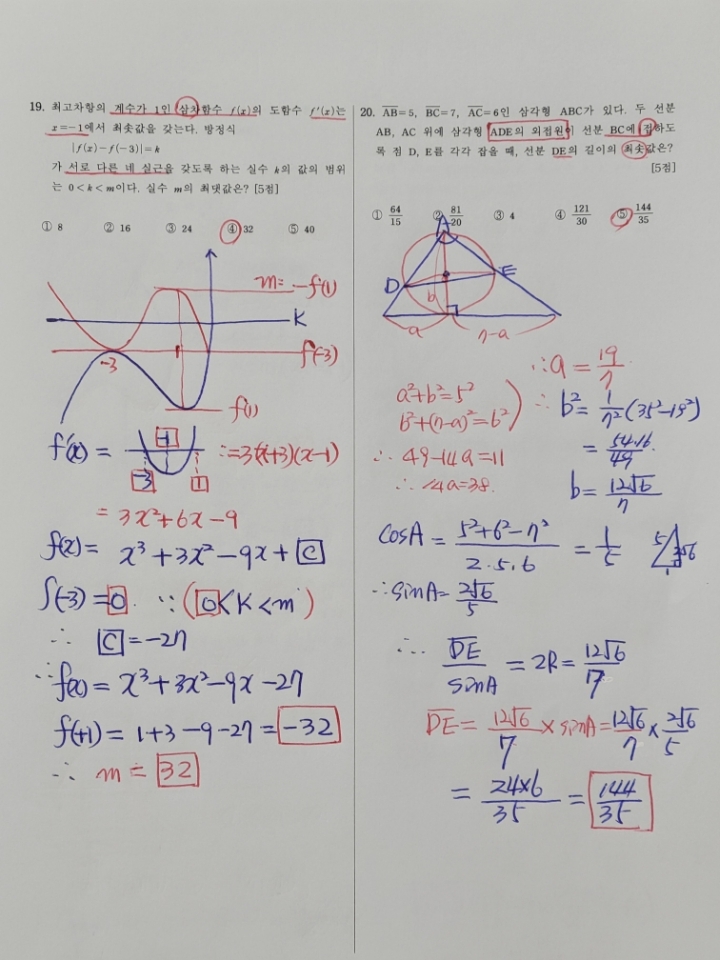 19. 최고차항의 계수가 1인 삼차함수 f(x)의 도함수 f'(x)는
x=-1에서 최솟값을 갖는다. 방정식
|f(x)-f(-3)|=k
가 서로 다른 네 실근을 갖도록 하는 실수 k의 값의 범위
는 0<k<m이다. 실수 m의 최댓값은? [5점]
① 8 ② 16 ③ 24 ④ 32 ⑤ 40
m= -f(1)
K
-3
f(-3)
f(1)
f'(x) = -3 -1 1 ∴=3(x+3)(x-1)
= 3x²+6x-9
f(x)= x³+3x²-9x+C
f(-3)=0 ∵(0<K<m)
∴ C=-27
∴f(x)= x³+3x²-9x-27
f(+1)= 1+3-9-27=-32
∴ m= 32
20. AB=5, BC=7, AC=6인 삼각형 ABC가 있다. 두 선분
AB, AC 위에 삼각형 ADE의 외접원이 선분 BC에 접하도
록 점 D, E를 각각 잡을 때, 선분 DE의 길이의 최솟값은?
[5점]
① 64/15 ② 81/20 ③ 4 ④ 121/30 ⑤ 144/35
A
D E
b
a 7-a
∴a = 19/7
a²+b²=5²
b²+(7-a)²=6²
∴ 49-14a=11
∴ 14a=38.
∴ b²= 1/7²(35²-19²)
= 54·16/49
b= 12√6/7
cosA = 5²+6²-7²/2·5·6 = 1/5 5 2√6 1
∴sinA= 2√6/5
∴ DE/sinA = 2R= 12√6/7
DE= 12√6/7 × sinA= 12√6/7 × 2√6/5
= 24×6/35 = 144/35